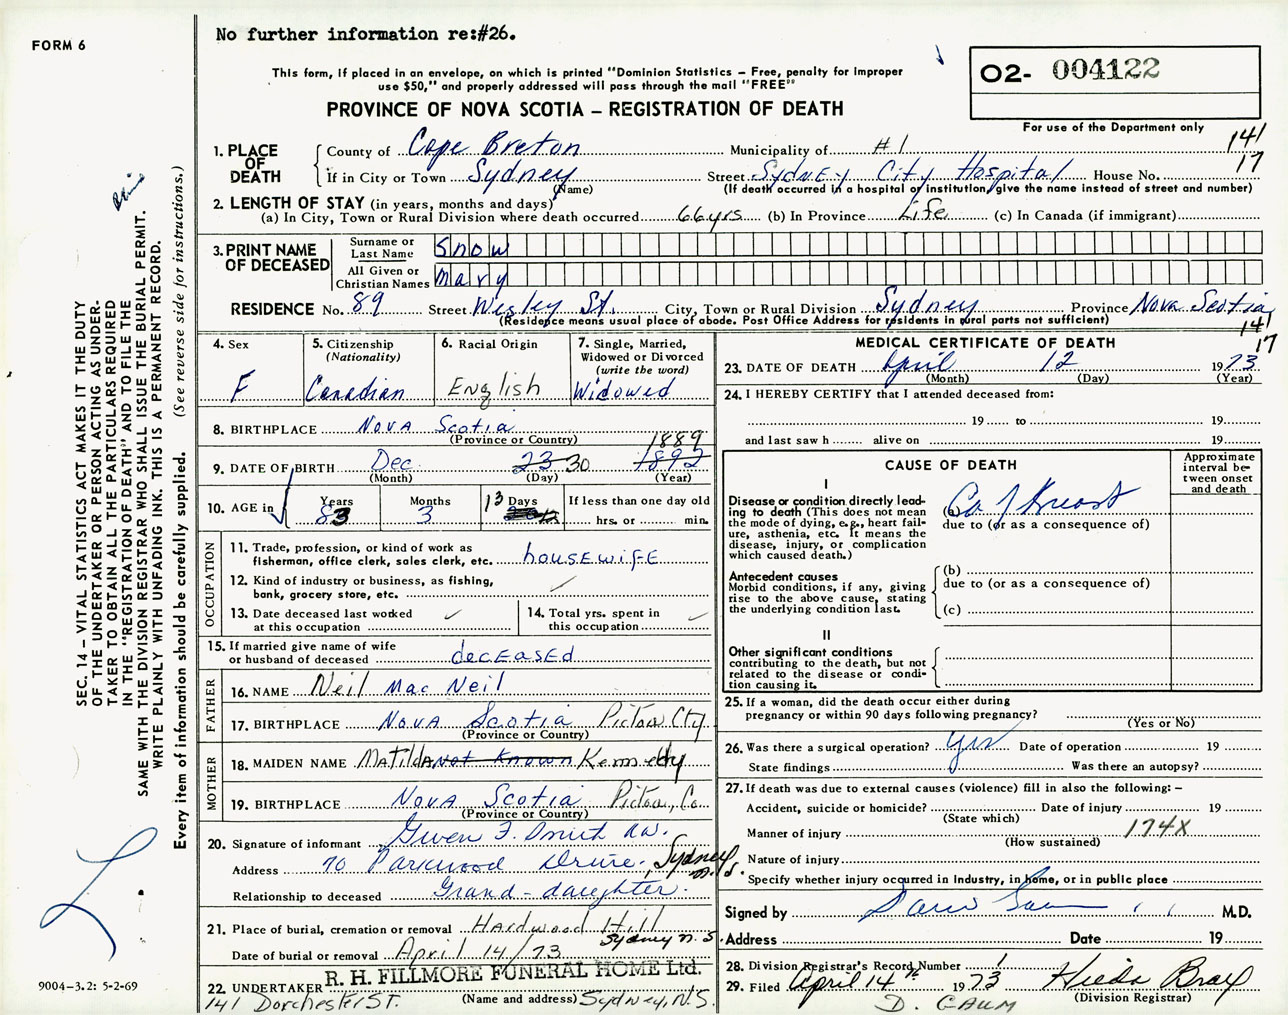 No further information re:#26.
FORM 6
This form, if placed in an envelope, on which is printed "Dominion Statistics – Free, penalty for improper
use $50," and properly addressed will pass through the mail "FREE"
O2- 004122
PROVINCE OF NOVA SCOTIA – REGISTRATION OF DEATH
For use of the Department only
141
17
1. PLACE OF DEATH
County of Cape Breton Municipality of #1
If in City or Town Sydney Street Sydney City Hospital House No.
(Name) (If death occurred in a hospital or institution, give the name instead of street and number)
2. LENGTH OF STAY (in years, months and days)
(a) In City, Town or Rural Division where death occurred 66 yrs (b) In Province Life (c) In Canada (if immigrant)
3. PRINT NAME OF DECEASED
Surname or Last Name Snow
All Given or Christian Names Mary
RESIDENCE No. 89 Street Wesley St. City, Town or Rural Division Sydney Province Nova Scotia
(Residence means usual place of abode. Post Office Address for residents in rural parts not sufficient)
141
17
4. Sex
F
5. Citizenship
(Nationality)
Canadian
6. Racial Origin
English
7. Single, Married,
Widowed or Divorced
(write the word)
Widowed
8. BIRTHPLACE Nova Scotia
(Province or Country)
1889
9. DATE OF BIRTH Dec. 23 30 1892
(Month) (Day) (Year)
10. AGE in
Years 83
Months 3
Days 13
If less than one day old
hrs. or min.
OCCUPATION
11. Trade, profession, or kind of work as
fisherman, office clerk, sales clerk, etc. housewife
12. Kind of industry or business, as fishing,
bank, grocery store, etc.
13. Date deceased last worked
at this occupation
14. Total yrs. spent in
this occupation
15. If married give name of wife
or husband of deceased deceased
FATHER
16. NAME Neil Mac Neil
17. BIRTHPLACE Nova Scotia Pictou Cty.
(Province or Country)
MOTHER
18. MAIDEN NAME Matilda Not Known Kennedy
19. BIRTHPLACE Nova Scotia Pictou, Co.
(Province or Country)
20. Signature of informant Gwen F.
Address 70 Parkwood Drive, Sydney N.S.
Relationship to deceased Grand-daughter.
21. Place of burial, cremation or removal Hardwood Hill
Sydney N.S.
Date of burial or removal April 14/73
R. H. FILLMORE FUNERAL HOME Ltd.
22. UNDERTAKER
141 Dorchester St. (Name and address) Sydney, N.S.
MEDICAL CERTIFICATE OF DEATH
23. DATE OF DEATH April 12 1973
(Month) (Day) (Year)
24. I HEREBY CERTIFY that I attended deceased from:
19 to 19
and last saw h alive on 19
CAUSE OF DEATH
Approximate
interval be-
tween onset
and death
I
Disease or condition directly lead-
ing to death (This does not mean
the mode of dying, e.g., heart fail-
ure, asthenia, etc. It means the
disease, injury, or complication
which caused death.)
(a) Ca of Breast
due to (or as a consequence of)
Antecedent causes
Morbid conditions, if any, giving
rise to the above cause, stating
the underlying condition last.
(b)
due to (or as a consequence of)
(c)
II
Other significant conditions
contributing to the death, but not
related to the disease or condi-
tion causing it.
25. If a woman, did the death occur either during
pregnancy or within 90 days following pregnancy?
(Yes or No)
26. Was there a surgical operation? yes Date of operation 19
State findings Was there an autopsy?
27. If death was due to external causes (violence) fill in also the following: –
Accident, suicide or homicide? Date of injury 19
(State which)
Manner of injury 174X
(How sustained)
Nature of injury
Specify whether injury occurred in Industry, in home, or in public place
Signed by M.D.
Address Date 19
28. Division Registrar's Record Number
29. Filed April 14th 1973 Hilda Bray
D. GAUM (Division Registrar)
SEC. 14 – VITAL STATISTICS ACT MAKES IT THE DUTY
OF THE UNDERTAKER OR PERSON ACTING AS UNDER-
TAKER TO OBTAIN ALL THE PARTICULARS REQUIRED
IN THE "REGISTRATION OF DEATH" AND TO FILE THE
SAME WITH THE DIVISION REGISTRAR WHO SHALL ISSUE THE BURIAL PERMIT.
WRITE PLAINLY WITH UNFADING INK. THIS IS A PERMANENT RECORD.
Every item of information should be carefully supplied. (See reverse side for instructions.)
9004-3.2: 5-2-69